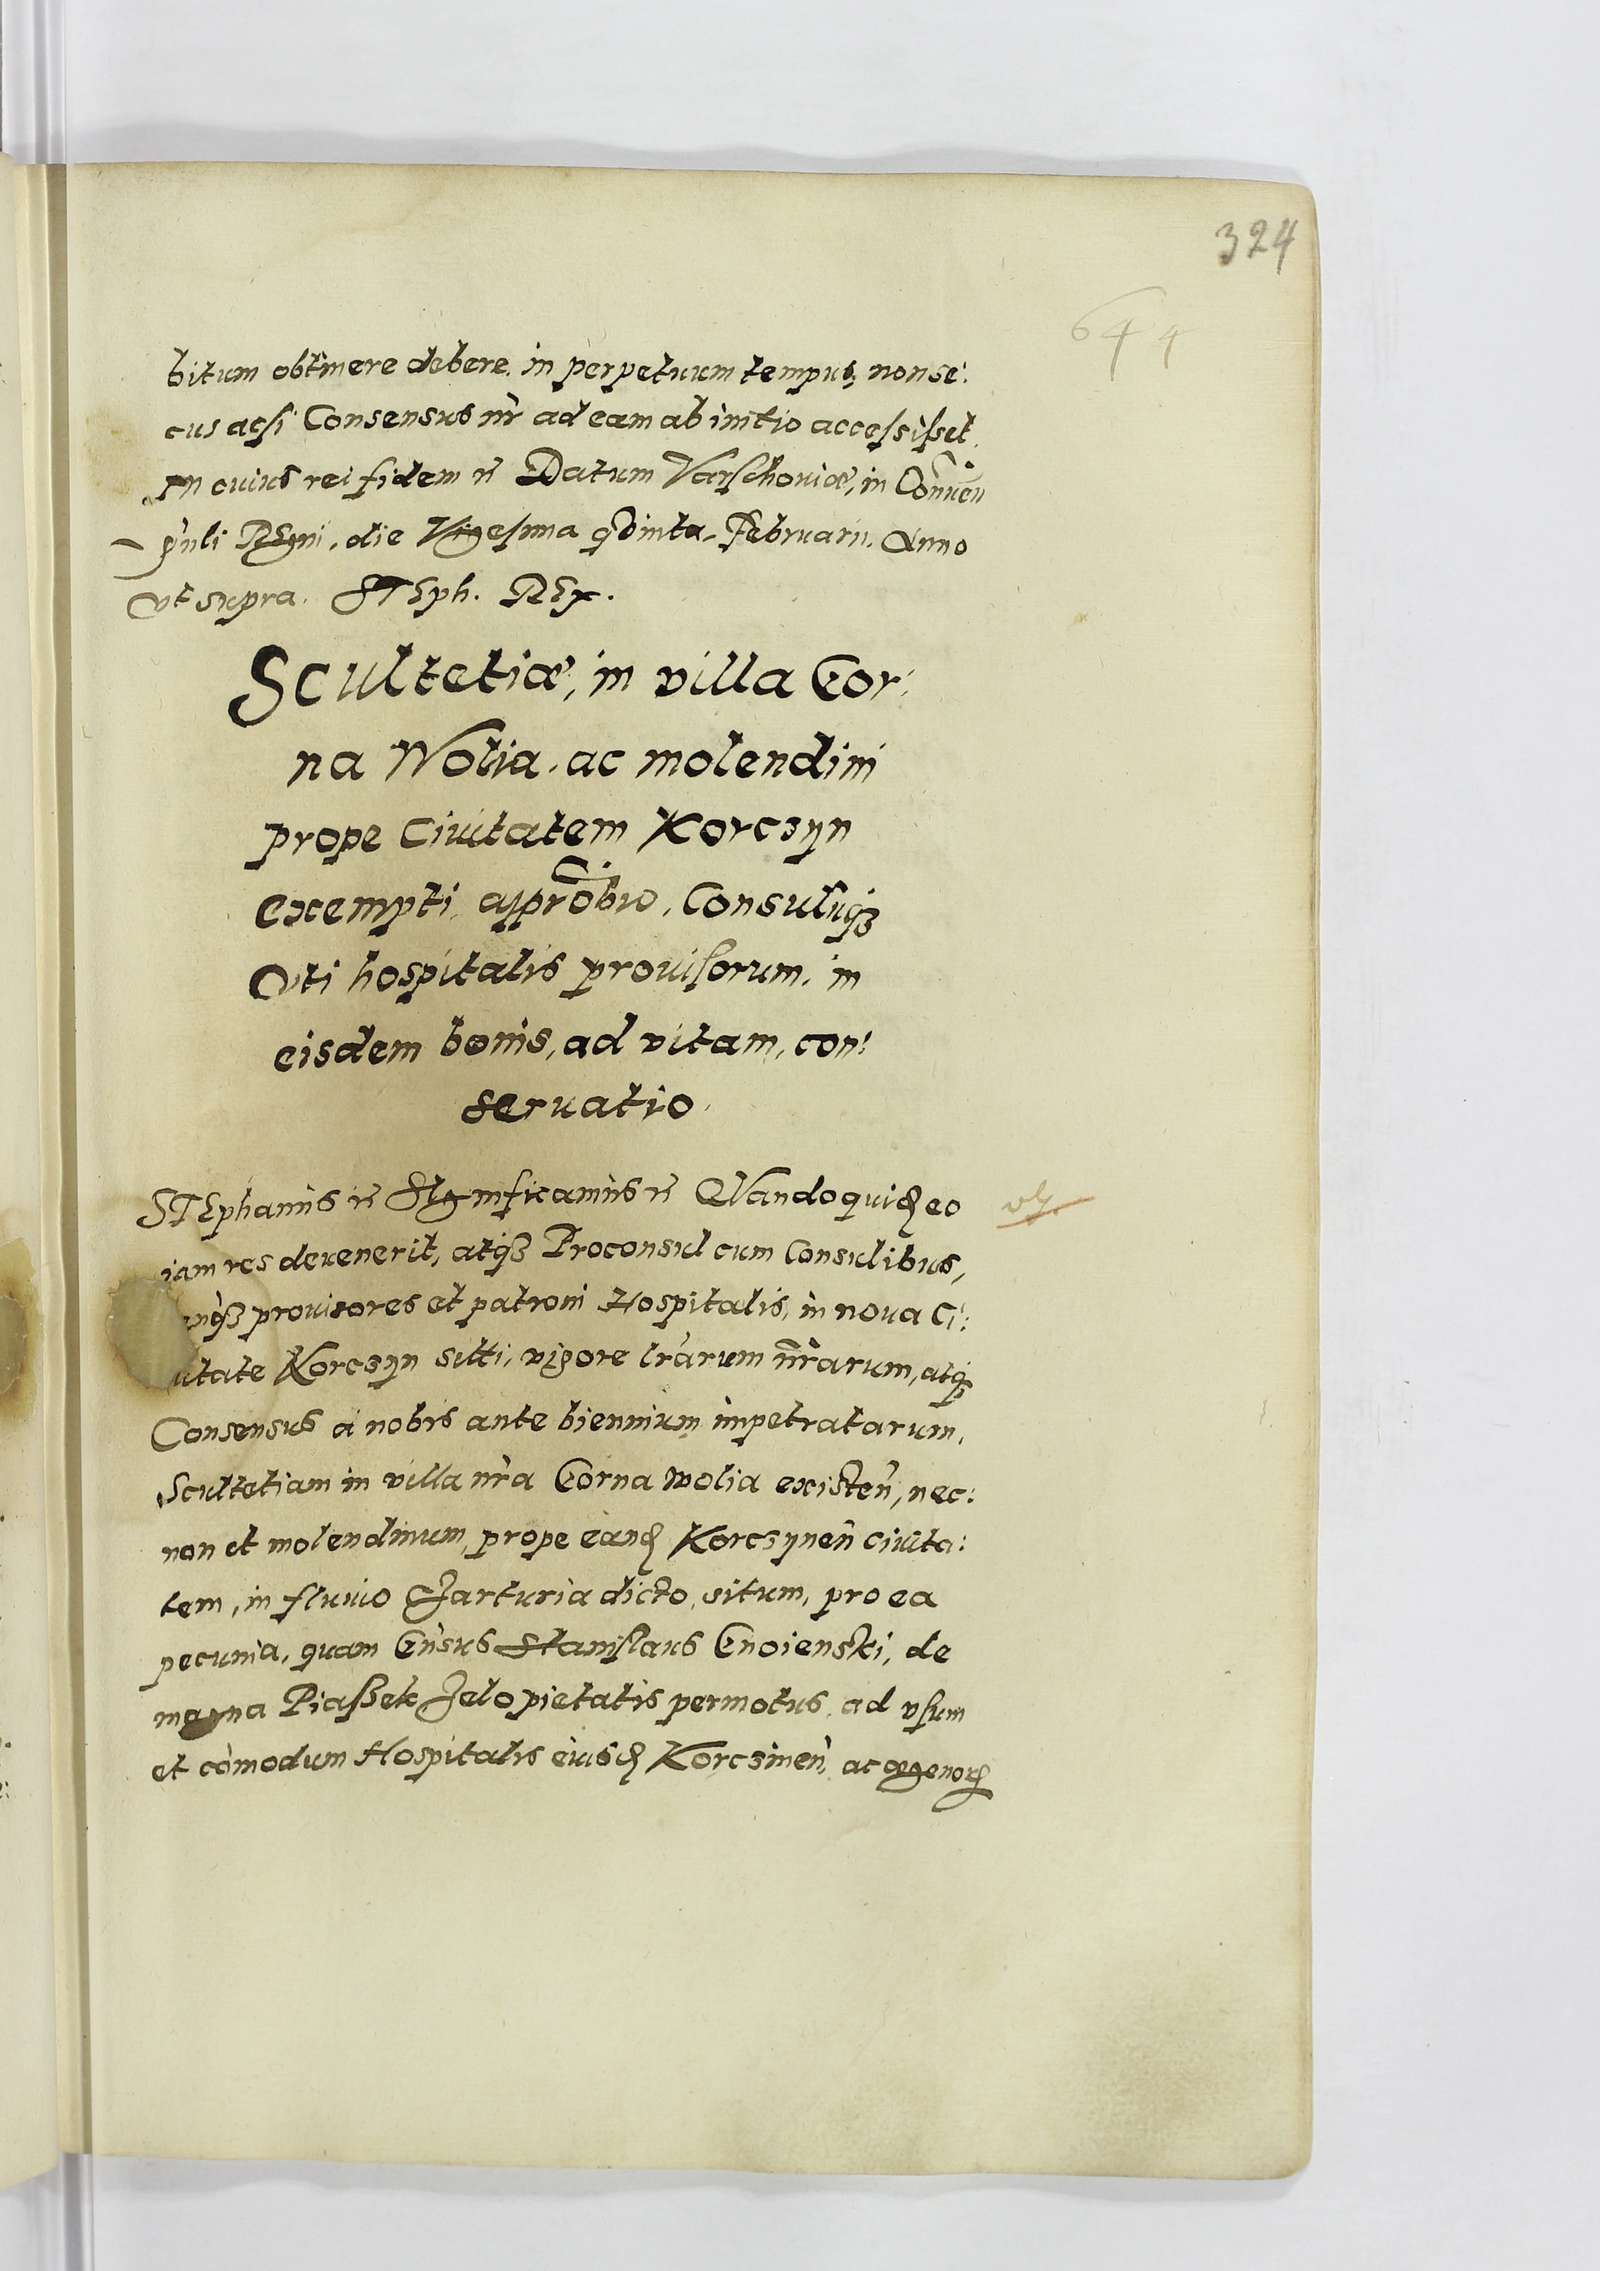 324
644
bitum obtinere debere. in perpetuum tempus, non se:
cus acsi Consensus nr̄ ad eam ab initio accessisset.
In cuius rei fidem etc Datum Varschouiæ, in Conuen
gn̄li Regni, die Vigesima qvinta Februarii. Anno
vt supra. STEph. REx.
Scultetiæ, in villa Gor:
na Wolia, ac molendini
prope Ciuitatem Korczyn
exempti, approbio, Consuluq3
vti hospitalis prouisorum, in
eisdem bonis, ad vitam, con:
seruatio.
STEphanus etc Significamus etc Qvandoquid eo
iam res deuenerit, atq3 Proconsul cum Consulibus,
prouisores et patroni Hospitalis, in noua Ci:
uitate Korczyn sitti, vigore lr̄arum nr̄arum, atq3
Consensus a nobis ante biennium impetratarum,
Scultetiam in villa nr̄a Gorna wolia existen̄, nec:
non et molendinum, prope eand Korczynen̄ ciuita:
tem, in fluuio Czarturia dicto, situm, pro ea
pecunia, quam Gn̄sus Stanislaus Gnoienski, de
magna Piassek Zelo pietatis permotus, ad vsum
et com̄odum Hospitalis eiusd Korczinen̄, ac ægenor